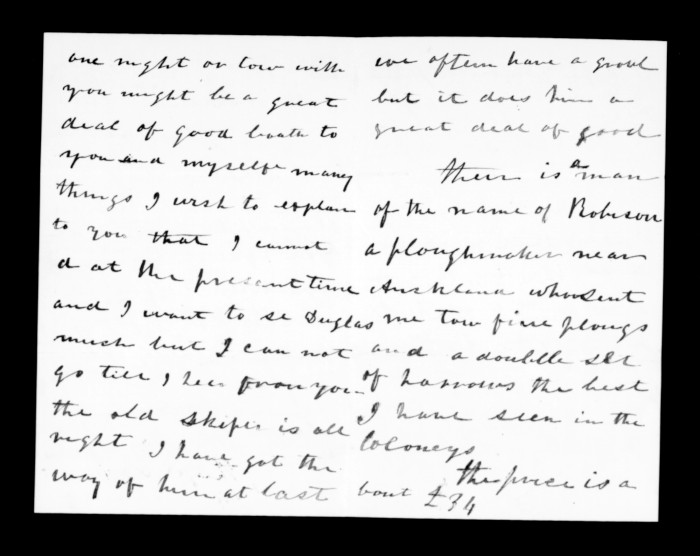 one night or tow with
you might be a great
deal of good boath to
you and myselfe maney
things I wish to explane
to you that I cannot
d at the present time
and I want to se Duglas
much but I can not
go till I hear from you
the old skiper is all
right I have got the
way of him at last
we oftern have a growl
but it does him a
great deal of good
their is a man
of the name of Robison
a ploughmaker near
Auskland who sent
me tow fine plougs
and a doublle set
of harrows the best
I have seen in the
Coloneys
the price is a
bout £34